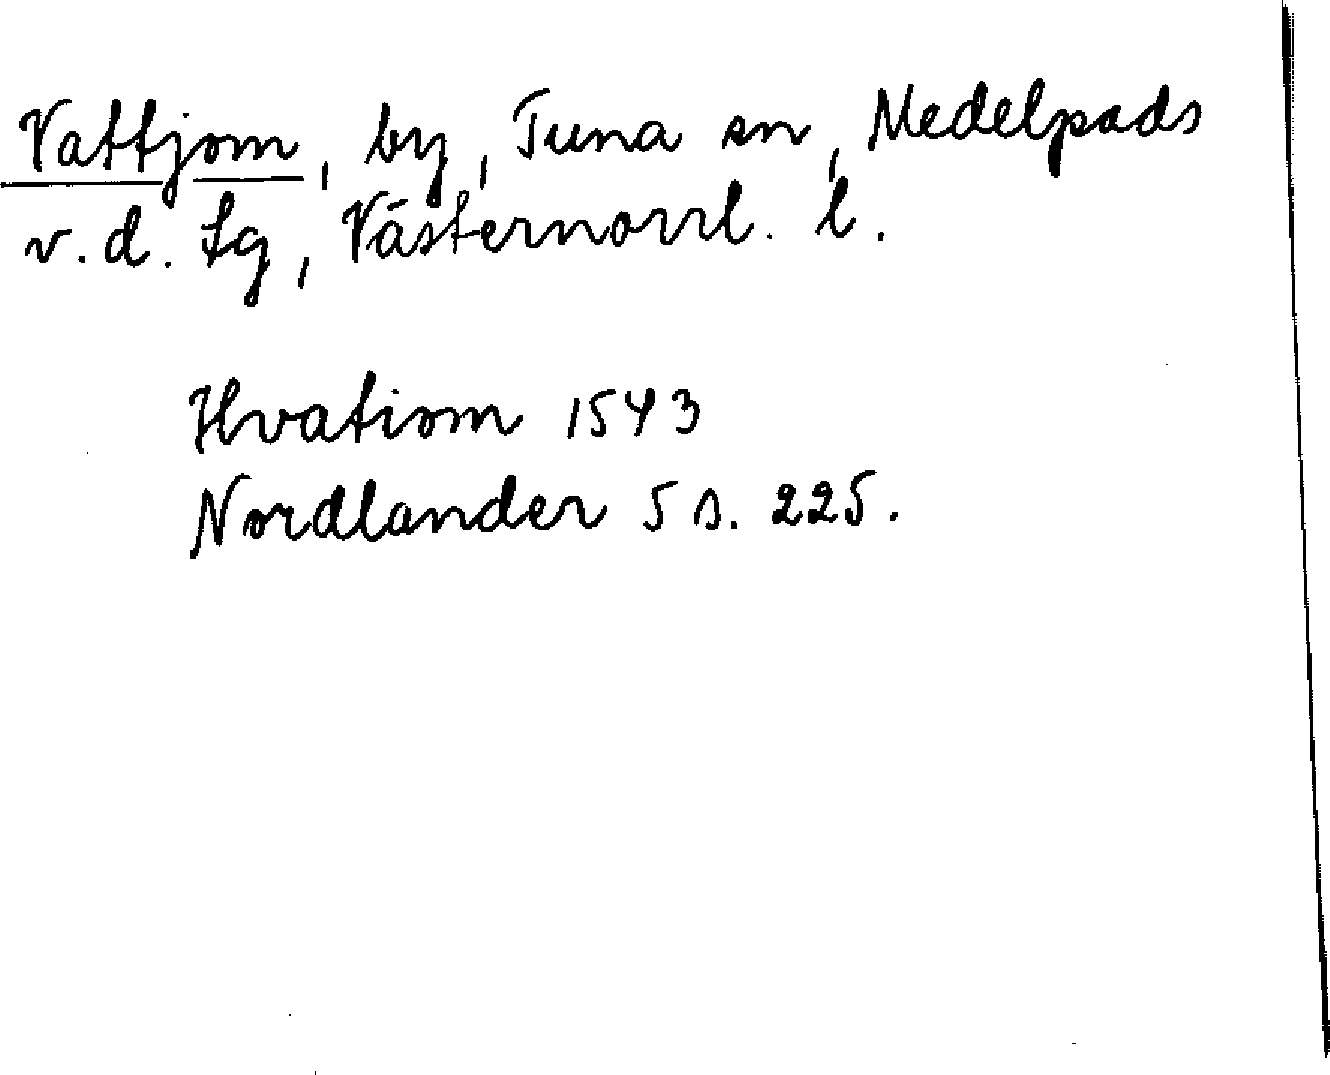 Vattjom, by, Tuna sn, Medelpads
v.d. tg, Västernorrl. l.
Hvatiom 1543
Nordlander 5 s. 225.